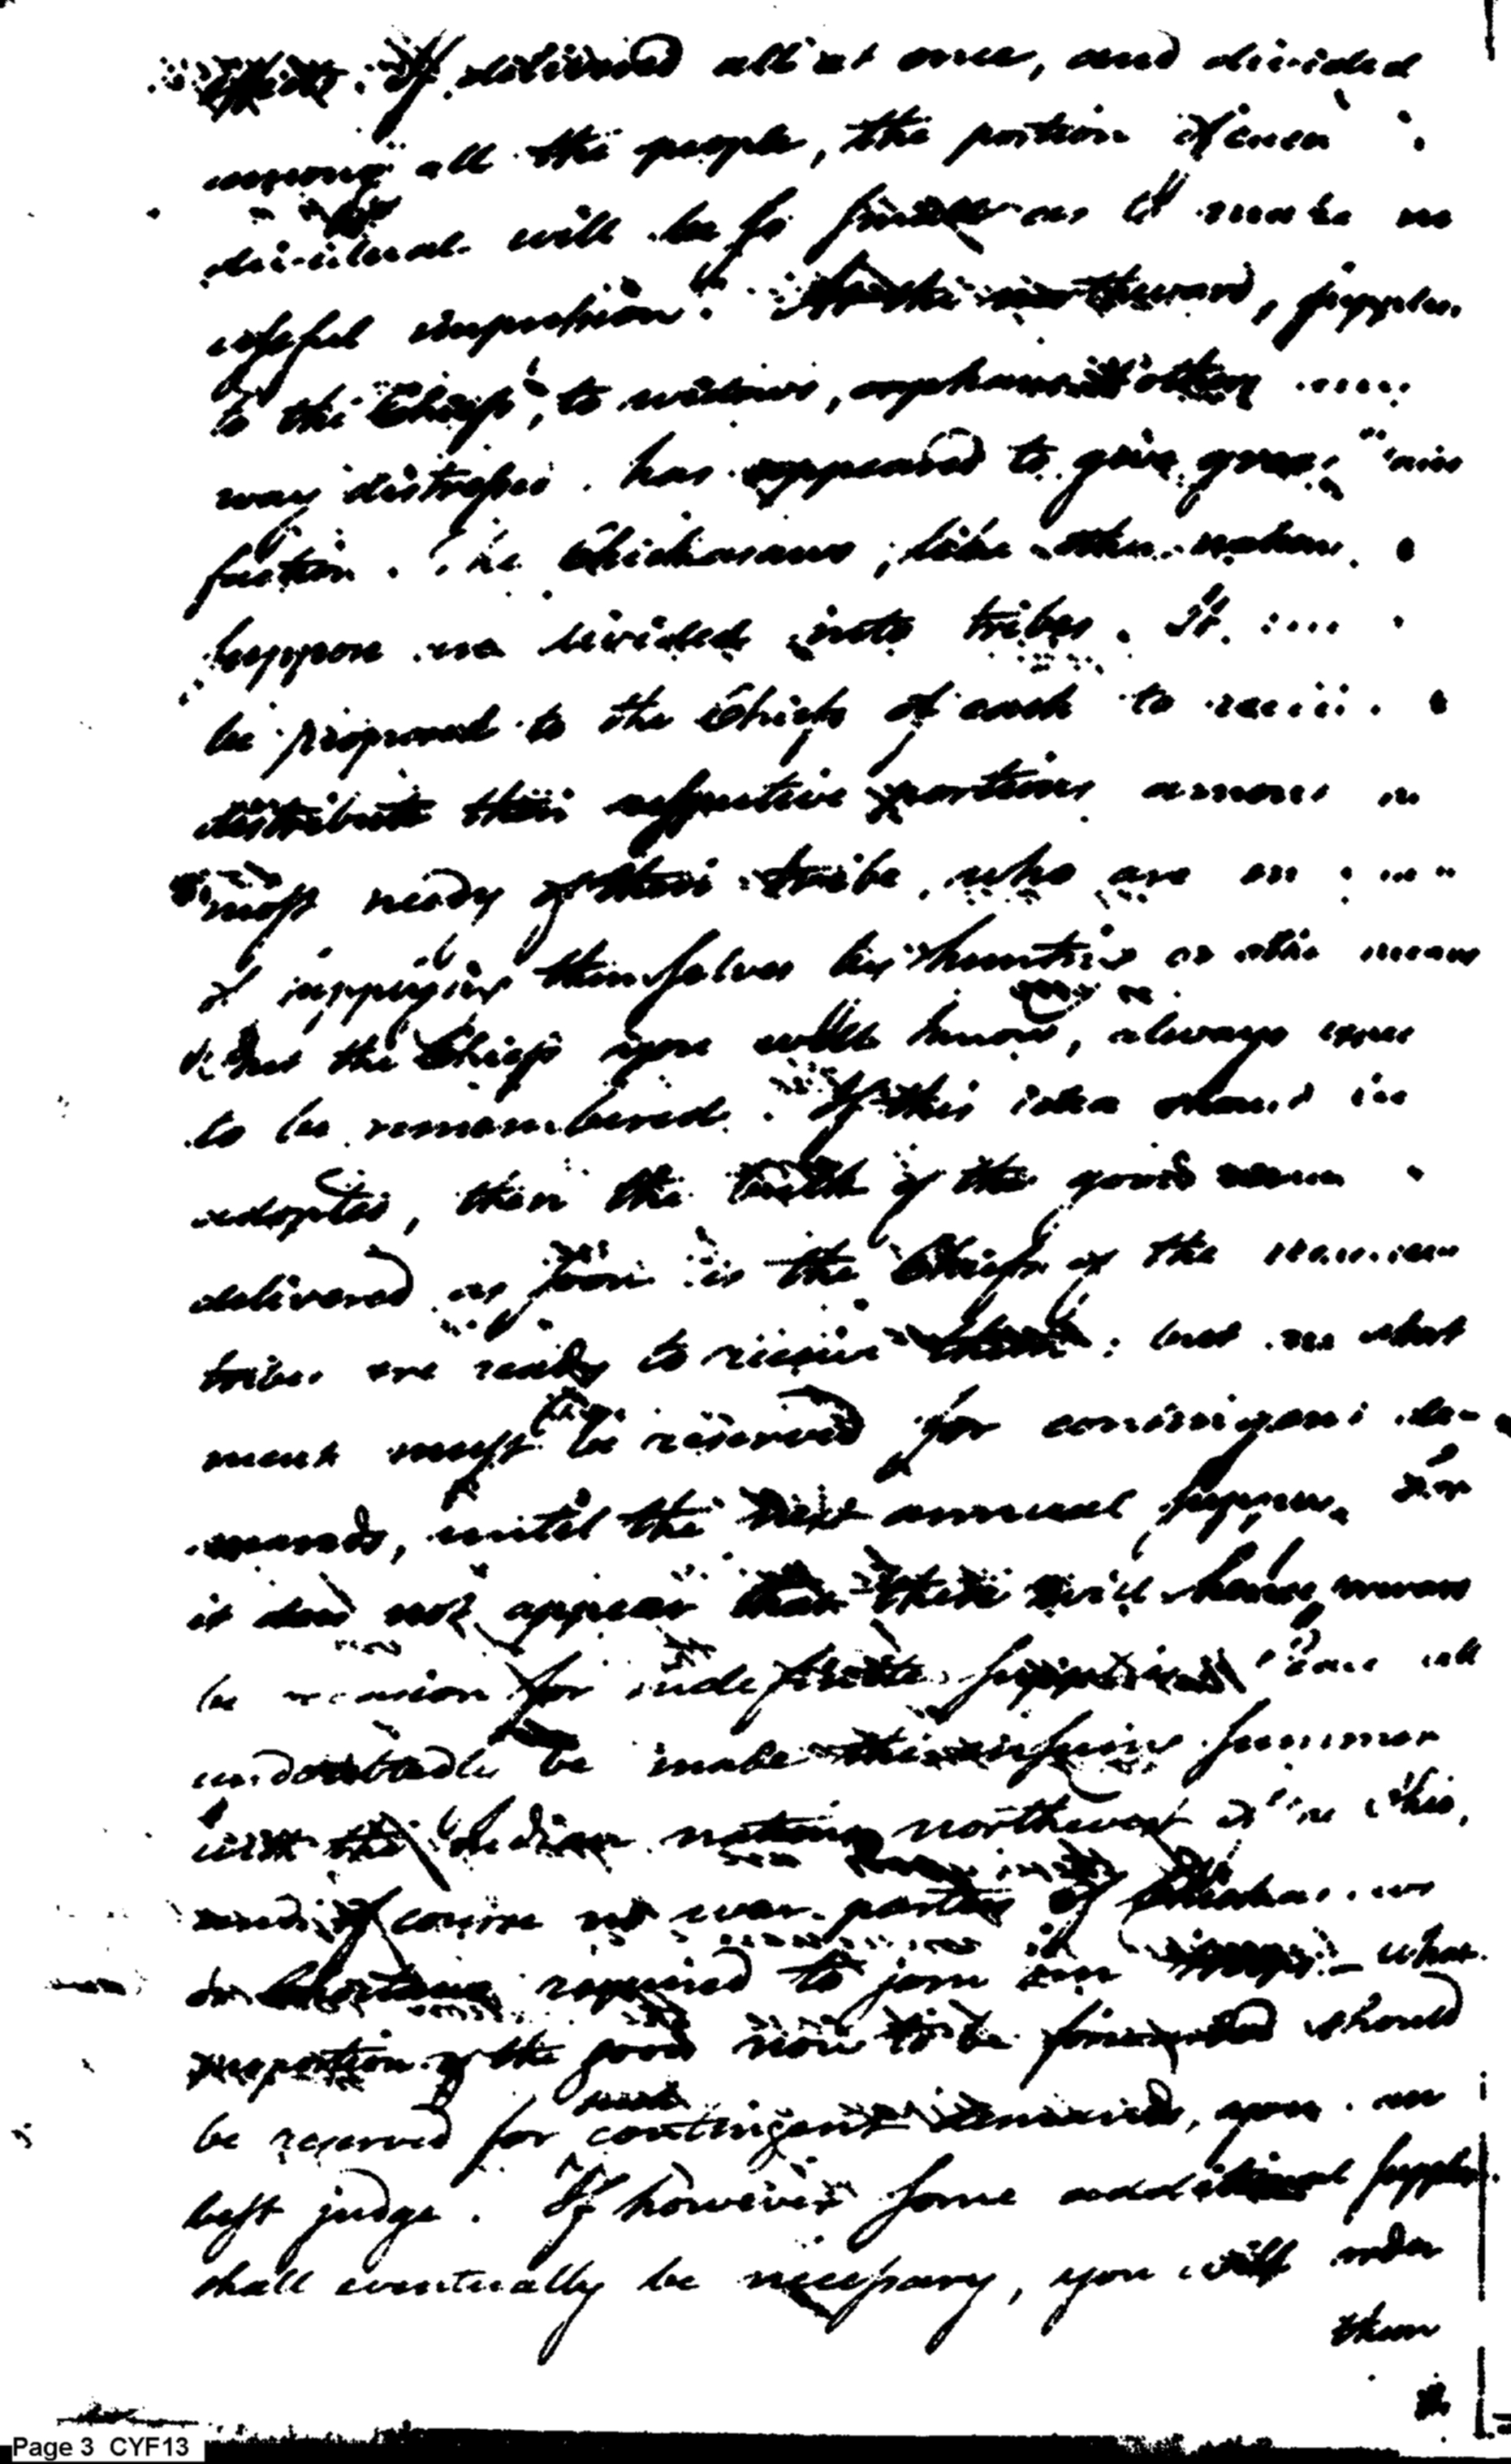 effects. If delivered all at once, and divided
among all the people, the portion of each
dividual will be so small as to make no
useful impression. To the northward, supplies
to the Chiefs, to widows, orphans & others
way distressed, has appeared to give great satis
faction. The Chickasaws, like other nations, I
suppose are divided into tribes. It
be proposed to the Chiefs of each to receive &
distribute their respective portions among
most needy of their tribe, who are
of supplying themselves by hunting or other means
the Chiefs you well know, always
to be remembered. If this idea should be
adopted, then the bulk of the goods
delivered as soon as the Chiefs of the
tribes are ready to receive them; but
ment must be reserved for contingent de-
mands, until the next annual supply. For
it does not appear that there will henceforward
be occasion for indefinite supplies. Peace will
undoubtedly be made the ensuing summer
with the Indian nations northwest of the Ohio,
and of course no war parties of Chickasaws
or Choctaws required to join our troops - What
proportion of the goods now to be forwarded should
be reserved for such contingent demands, you can
best judge. If however some additional supplies
shall eventually be necessary, you will order
them
Page 3 CYF13